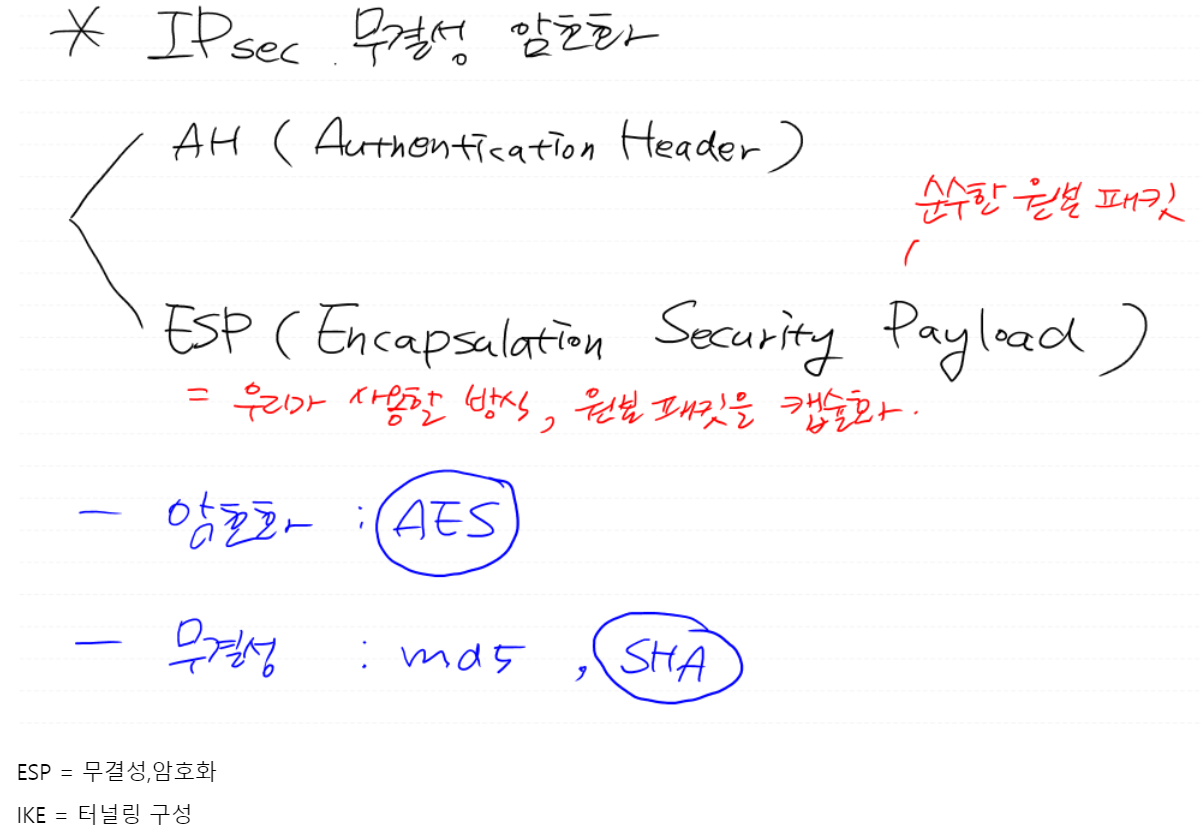 * IPsec . 무결성 암호화
AH ( Authentication Header )
순수한 원본 패킷
ESP ( Encapsulation Security Payload )
= 우리가 사용할 방식, 원본 패킷을 캡슐화.
- 암호화 : AES
- 무결성 : md5 , SHA
ESP = 무결성,암호화
IKE = 터널링 구성